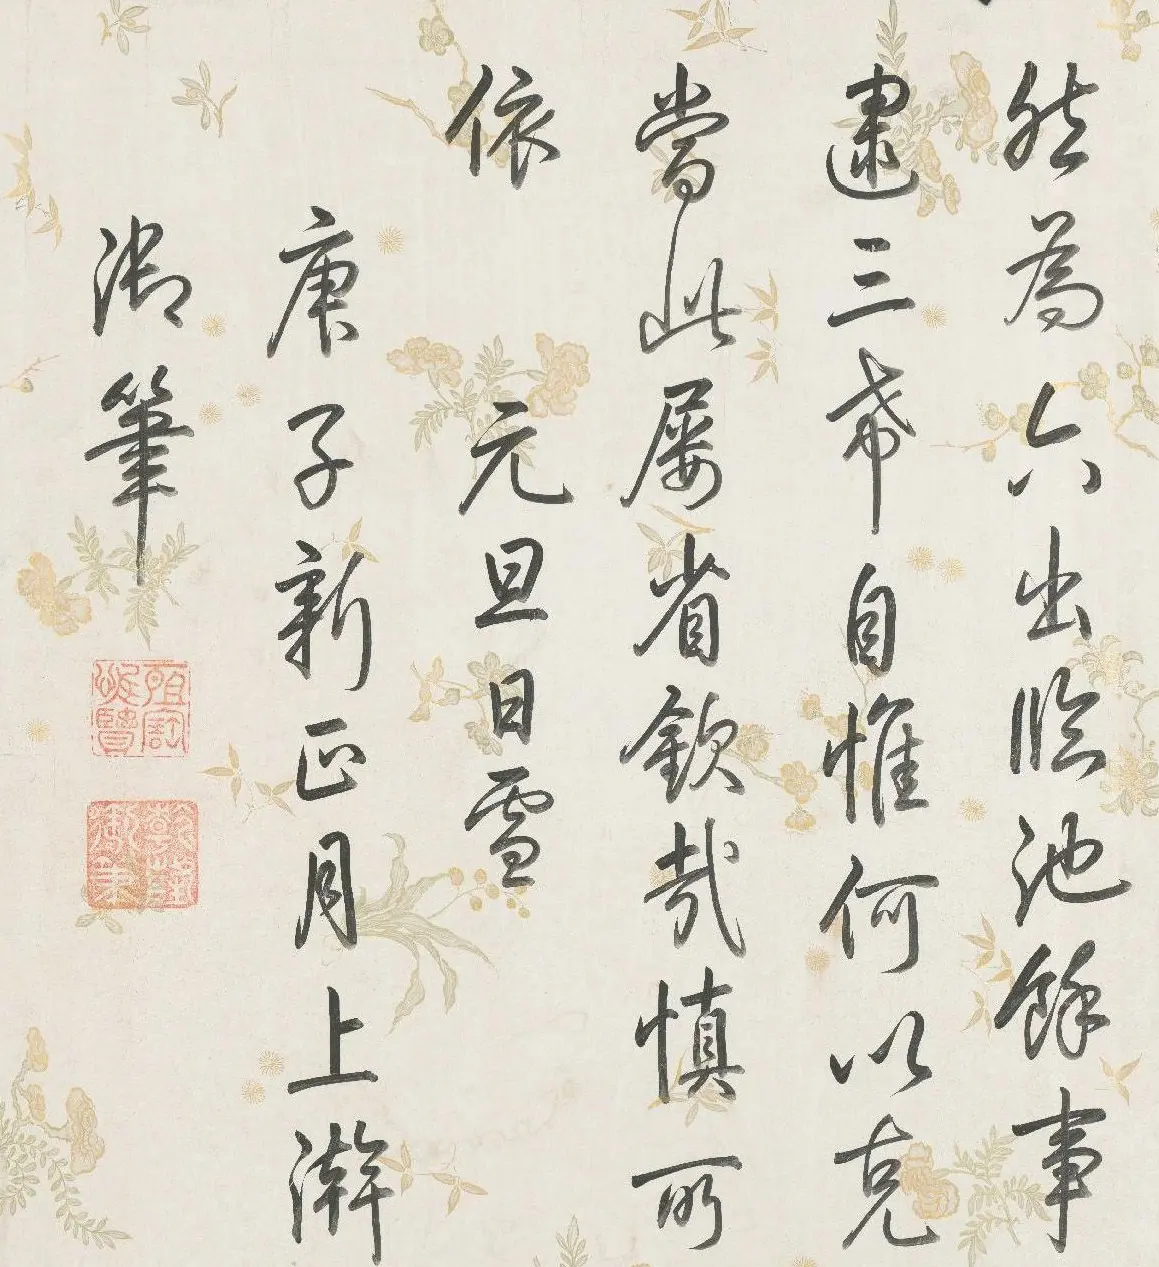 然為六出臨池餘事
逮三希自惟何以克
當此屢省欽哉慎所
依
元旦日雪
庚子新正月上澣
御筆
乾隆御筆